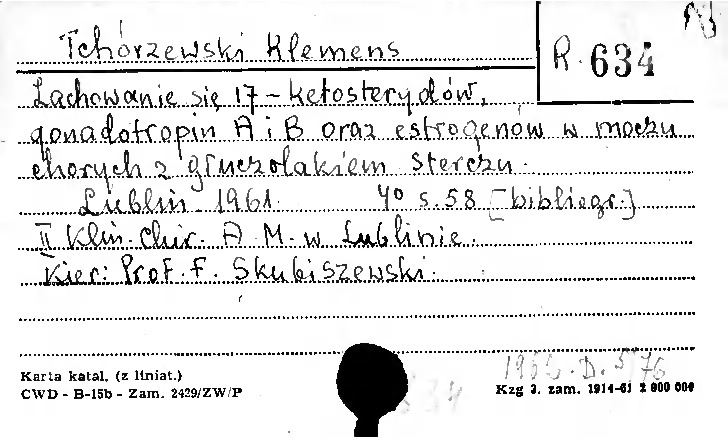 Tchórzewski Klemens
R. 634
Zachowanie się 17-ketosterydów,
gonadotropin A i B oraz estrogenów w moczu
chorych z gruczolakiem stercza.
Lublin 1961. 4° s. 58 [bibliogr.]
II Klin. Chir. A. M. w Lublinie.
Kier: Prof. F. Skubiszewski.
Karta katal. (z liniat.)
CWD - B-15b - Zam. 2429/ZW/P
1962. D. 5/76
Kzg 3. zam. 1914-61 2 000 000